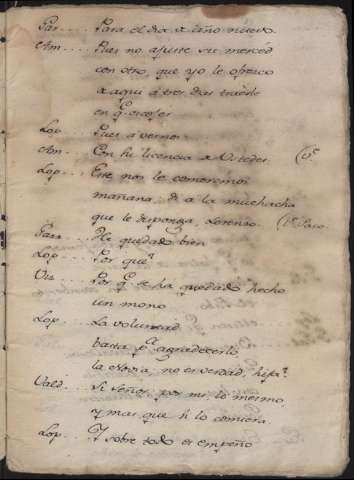 Par.... Para el dia de año nuevo.
Am.... Pues no ajuste su merced
con otro, que yo le ofrezco
de aqui à tres dias traerle
en q.e escojer
Lop.... Pues a vernos
Am.... Con su licencia de Ustedes (v.e
Lop.... Este nos le comeremos
mañana, di a la muchacha
que le disponga, Lorenzo.
Parr... He quedado bien
Lop... Por que?
Viz... Por q.e se ha quedado hecho
un mono
Lop... La voluntad
basta p.a agradecerlo
la obra, no es verdad, hija?
Vald... Si Señor, por mi, lo mesmo
y mas que él lo comiera.
Lop... Y sobre todo es empeño